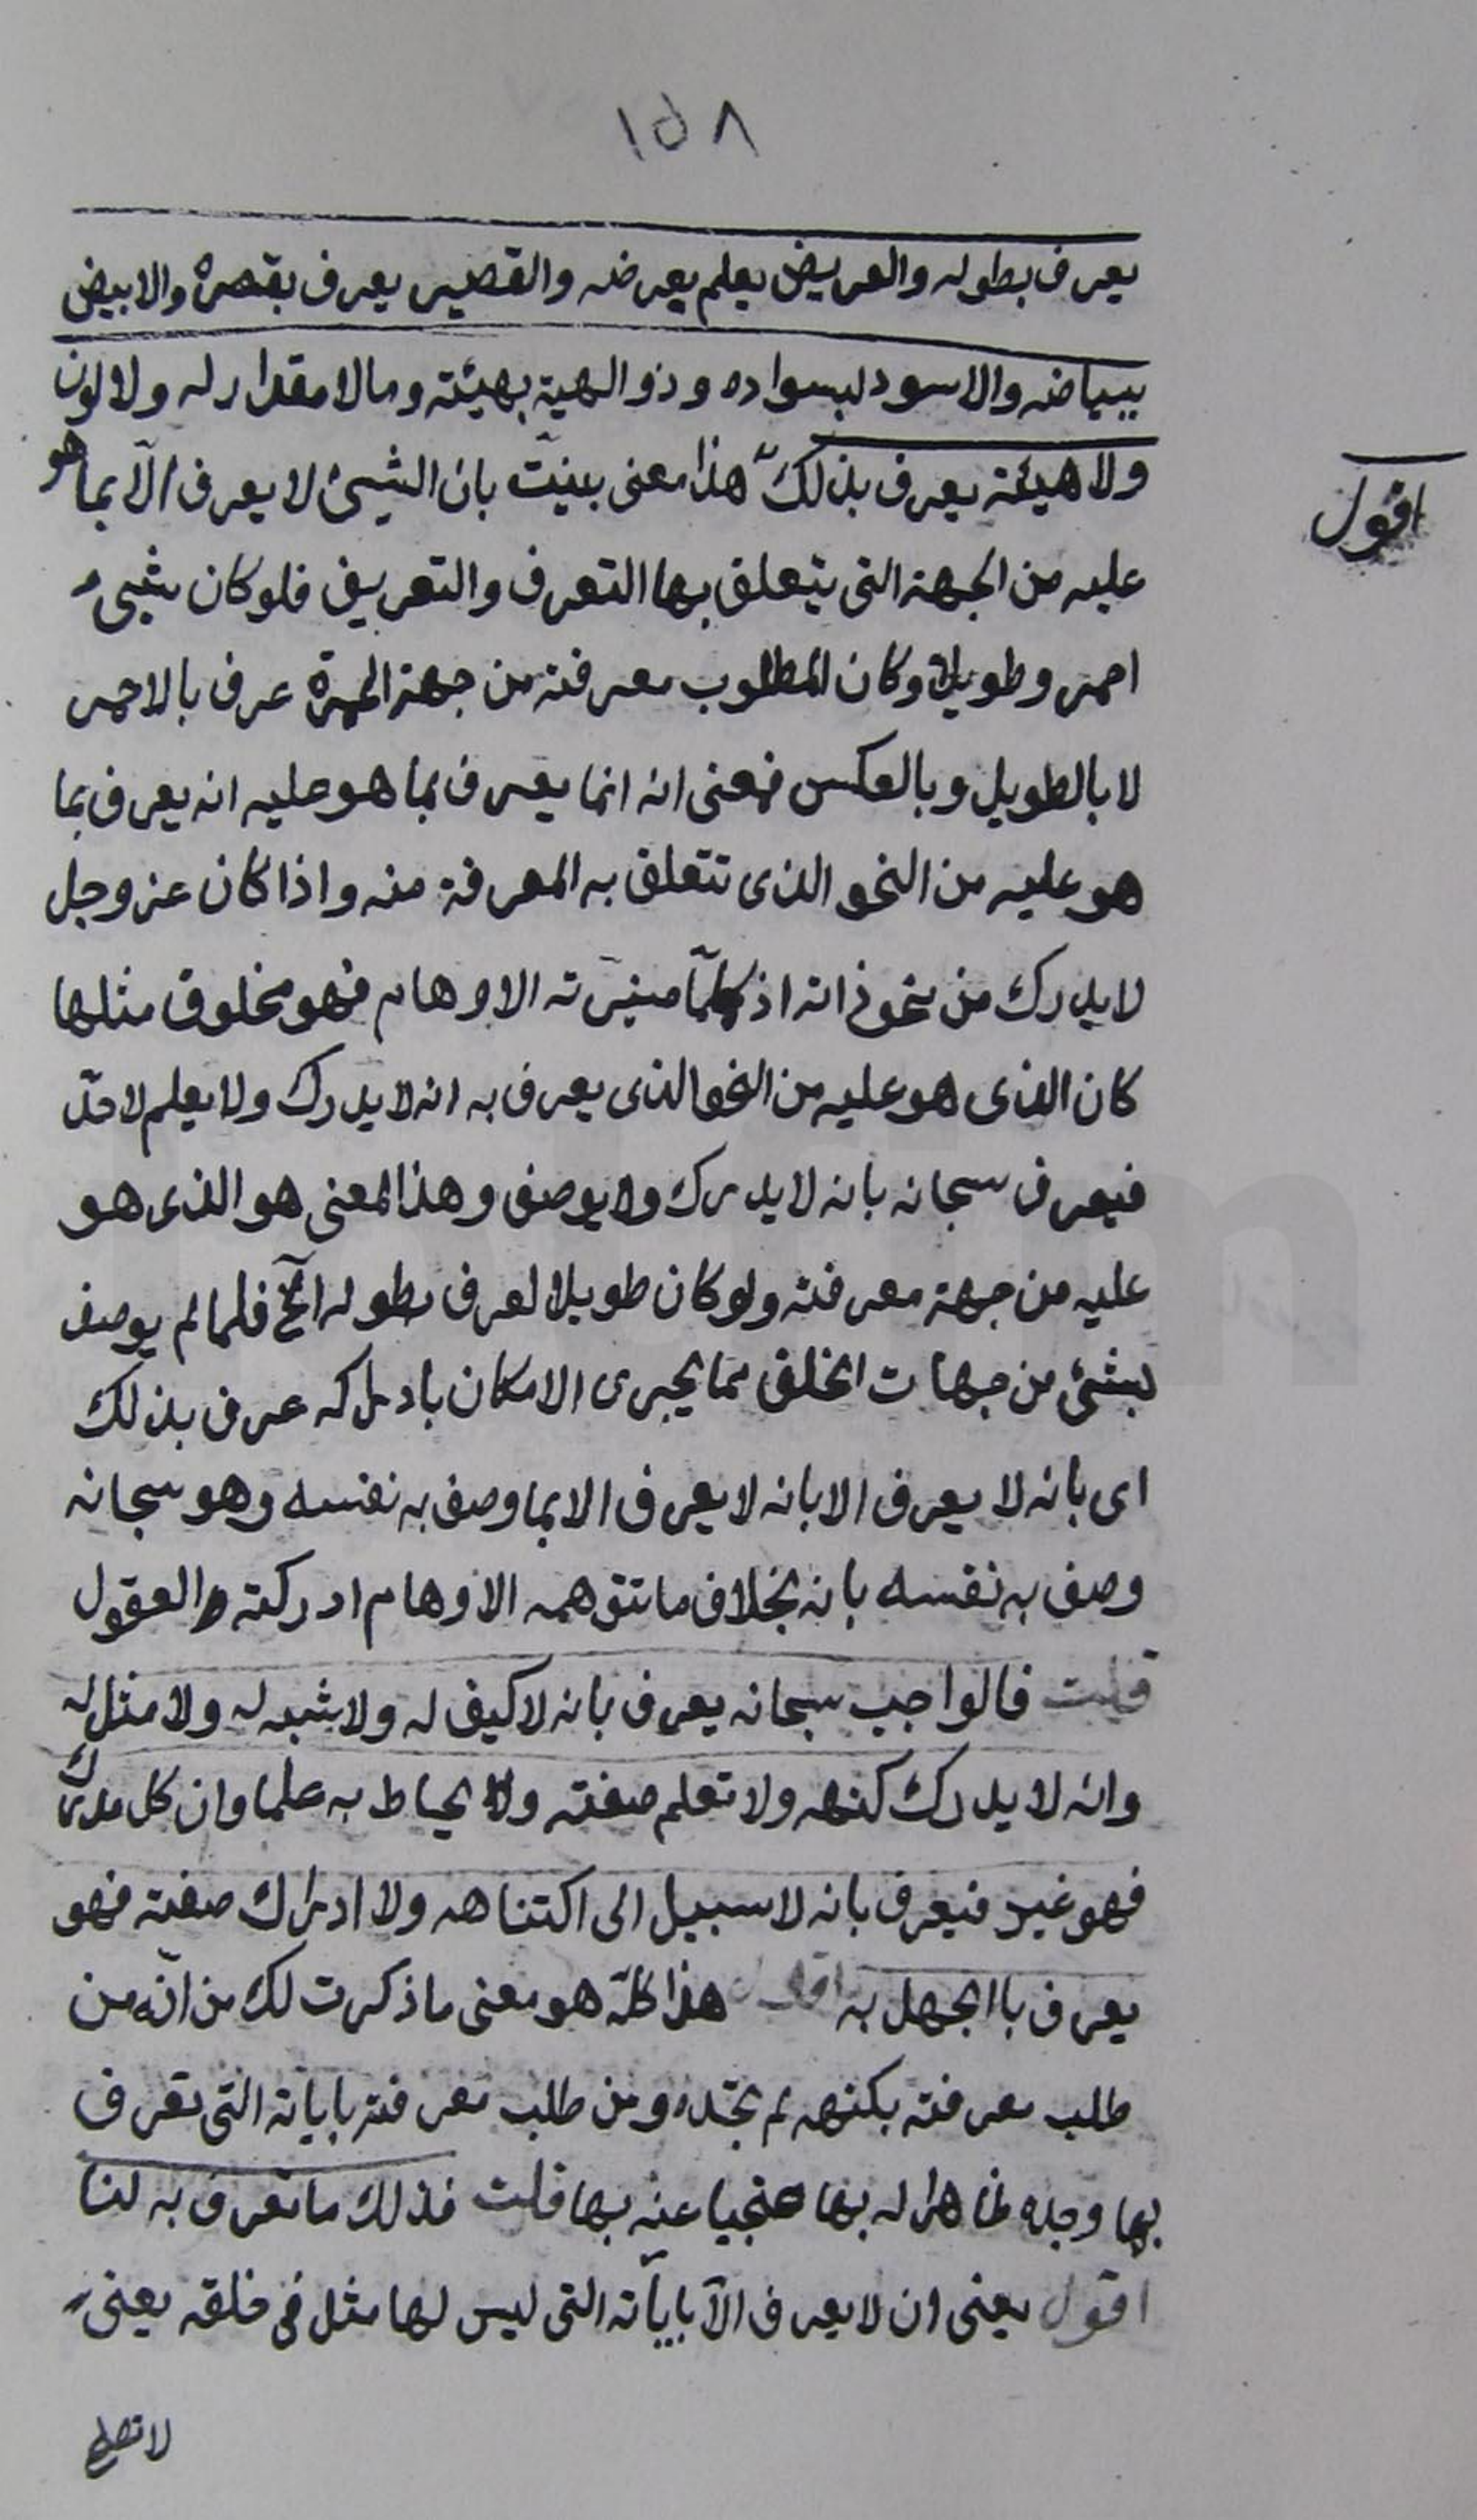 ١٥٨
يعرف بطوله والعريض يعلم بعرضه والقصير يعرف بقصره والابيض
ببياضه والاسود بسواده وذو الهيئة بهيئته وما لا مقدار له ولا لون
ولا هيئة يعرف بذلك هذا معنى بينت بان الشيئ لا يعرف الّا بما هو
اقول
عليه من الجهة التى يتعلق بها التعرف والتعريف فلو كان شيئ
احمر وطويلا وكان المطلوب معرفته من جهة الحمرة عرف بالاحمر
لا بالطويل وبالعكس فمعنى انه انما يعرف بما هو عليه انه يعرف بما
هو عليه من النحو الذى تتعلق به المعرفة منه واذا كان عز وجل
لا يدرك من نحو ذاته اذ كلّما ميّزته الاوهام فهو مخلوق مثلها
كان الذى هو عليه من النحو الذى يعرف به انه لا يدرك ولا يعلم لاحدّ
فيعرف سبحانه بانه لا يدرك ولا يوصف وهذا المعنى هو الذى هو
عليه من جهة معرفته ولو كان طويلا لعرف بطوله الخ فلما لم يوصف
بشئ من جهات الخلق مما يجرى الامكان بادراكه عرف بذلك
اى بانه لا يعرف الا بانه لا يعرف الا بما وصف به نفسه وهو سبحانه
وصف به نفسه بانه بخلاف ما تتوهمه الاوهام ادركته والعقول
قلت فالواجب سبحانه يعرف بانه لا كيف له ولا شبه له ولا مثل له
وانه لا يدرك كنهه ولا تعلم صفته ولا يحاط به علما وان كل مدرك
فهو غيره فيعرف بانه لا سبيل الى اكتناهه ولا ادراك صفته فهو
يعرف باالجهل به اقول هذا كلّه هو معنى ما ذكرت لك من انّه من
طلب معرفته بكنهه لم يجده ومن طلب معرفته باياته التى تعرف
بها وجده ظاهرا له بها محتجبا عنه بها قلت فذلك ما تعرف به لنا
اقول يعنى ان لا يعرف الّا باياته التى ليس لها مثل فى خلقه يعنى
لا تصلح